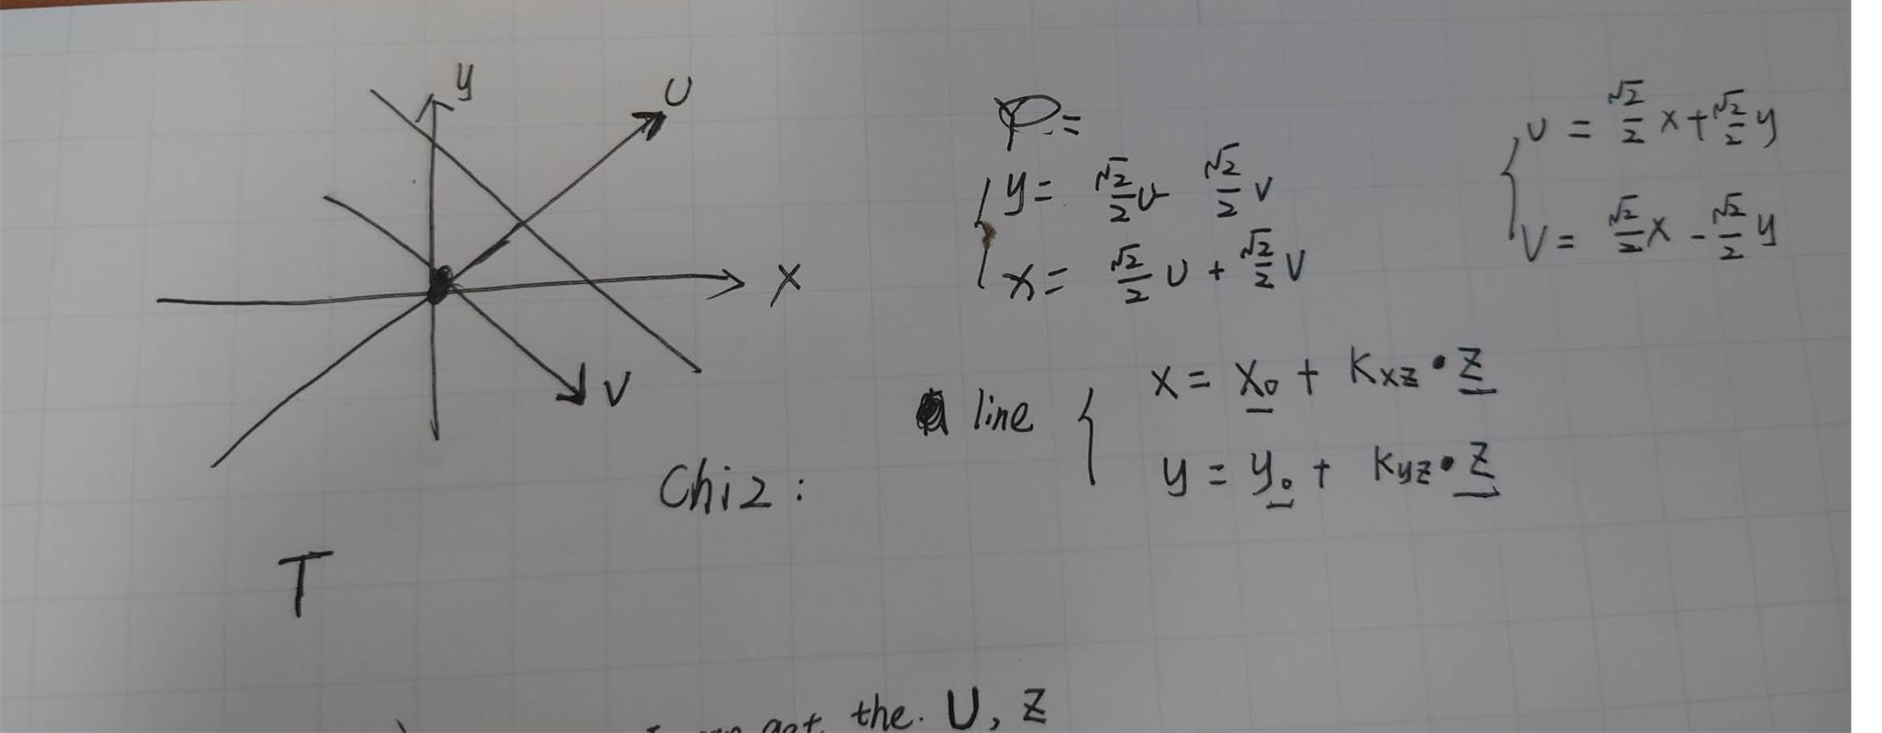 y
U
X
V
φ=
y= √2/2 U √2/2 V
x= √2/2 U + √2/2 V
U = √2/2 x + √2/2 y
V = √2/2 x - √2/2 y
line
x = x₀ + Kxz · z
y = y₀ + Kyz · z
Chi2:
T
got the. U, Z